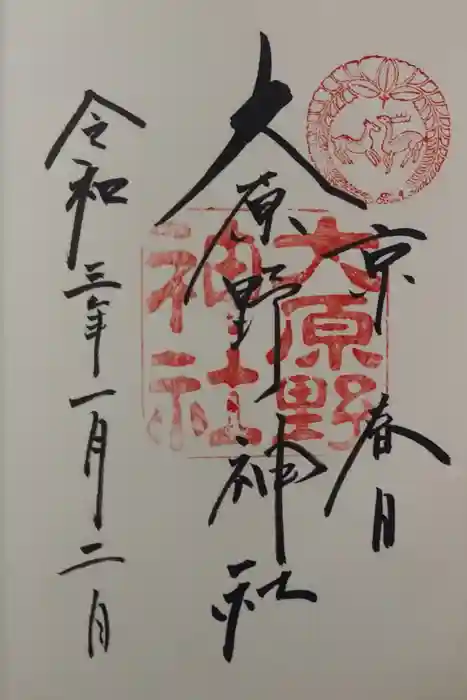 京春日
大原野神社
令和三年一月二月
大原野
神社